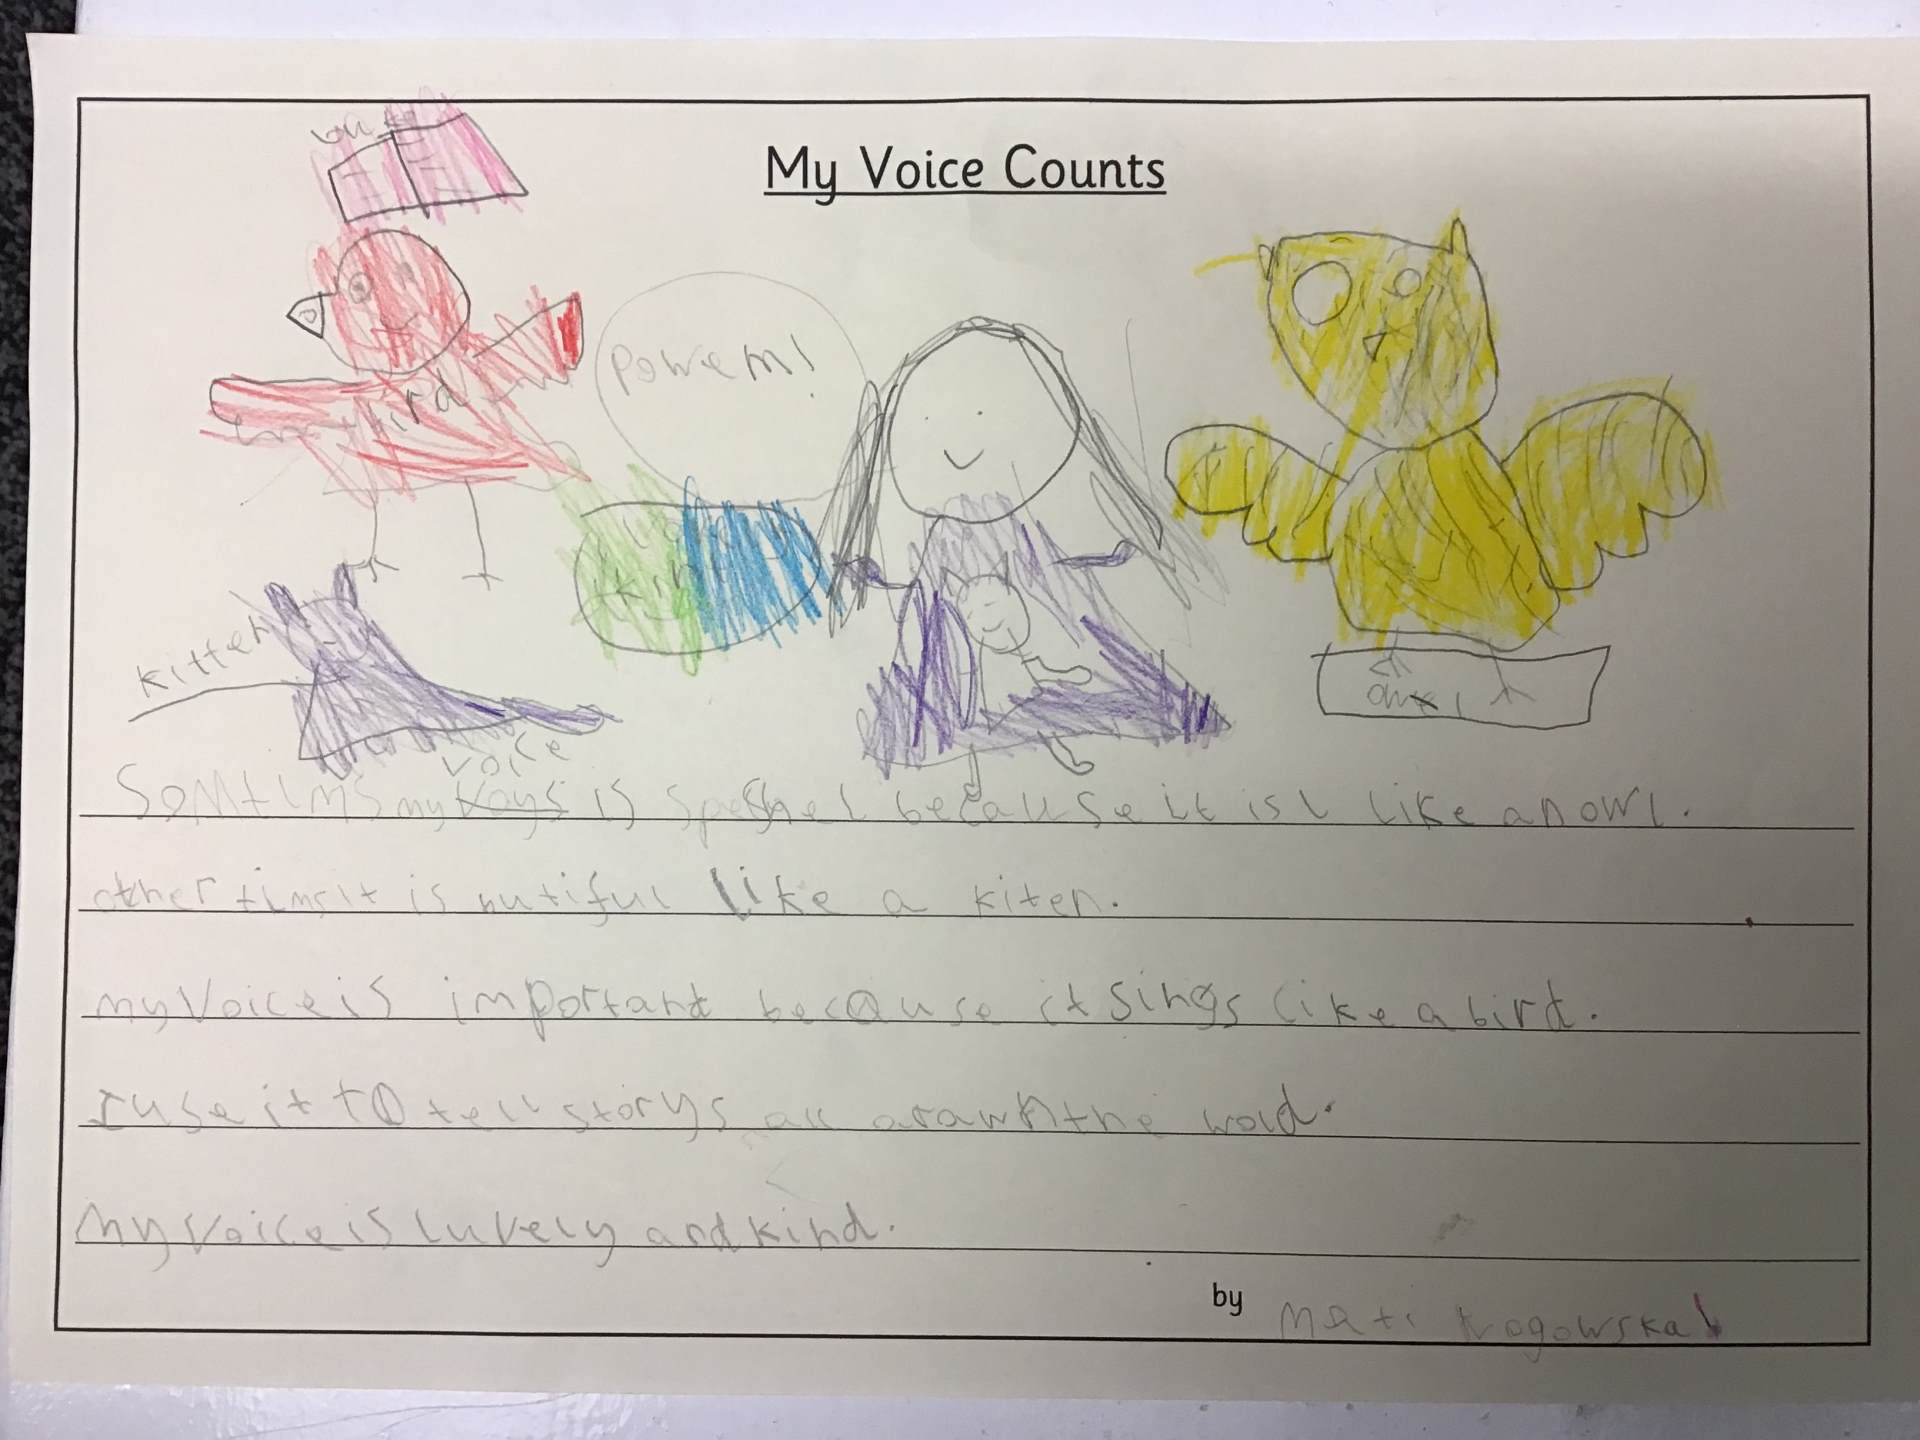 My Voice Counts
Powem!
bird
kitten
voice
Somtims my voys is speshel because it is l like an owl.
other tims it is butiful like a kiten.
my voice is important because it sings like a bird.
I use it to tell storys all arawn the wold.
My voice is luvely and kind.
by